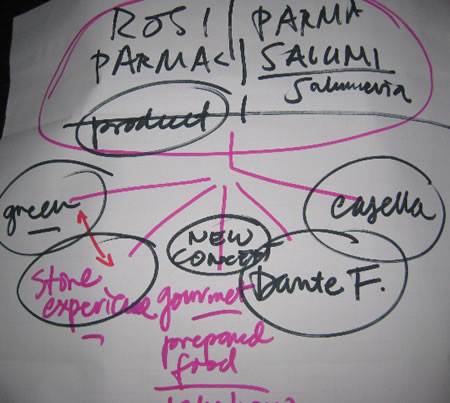 ROSI PARMA
PARMAC SALUMI
Salumeria
product
green
casella
NEW
CONCEPT
store
experience
gourmet
prepared
food
Dante F.